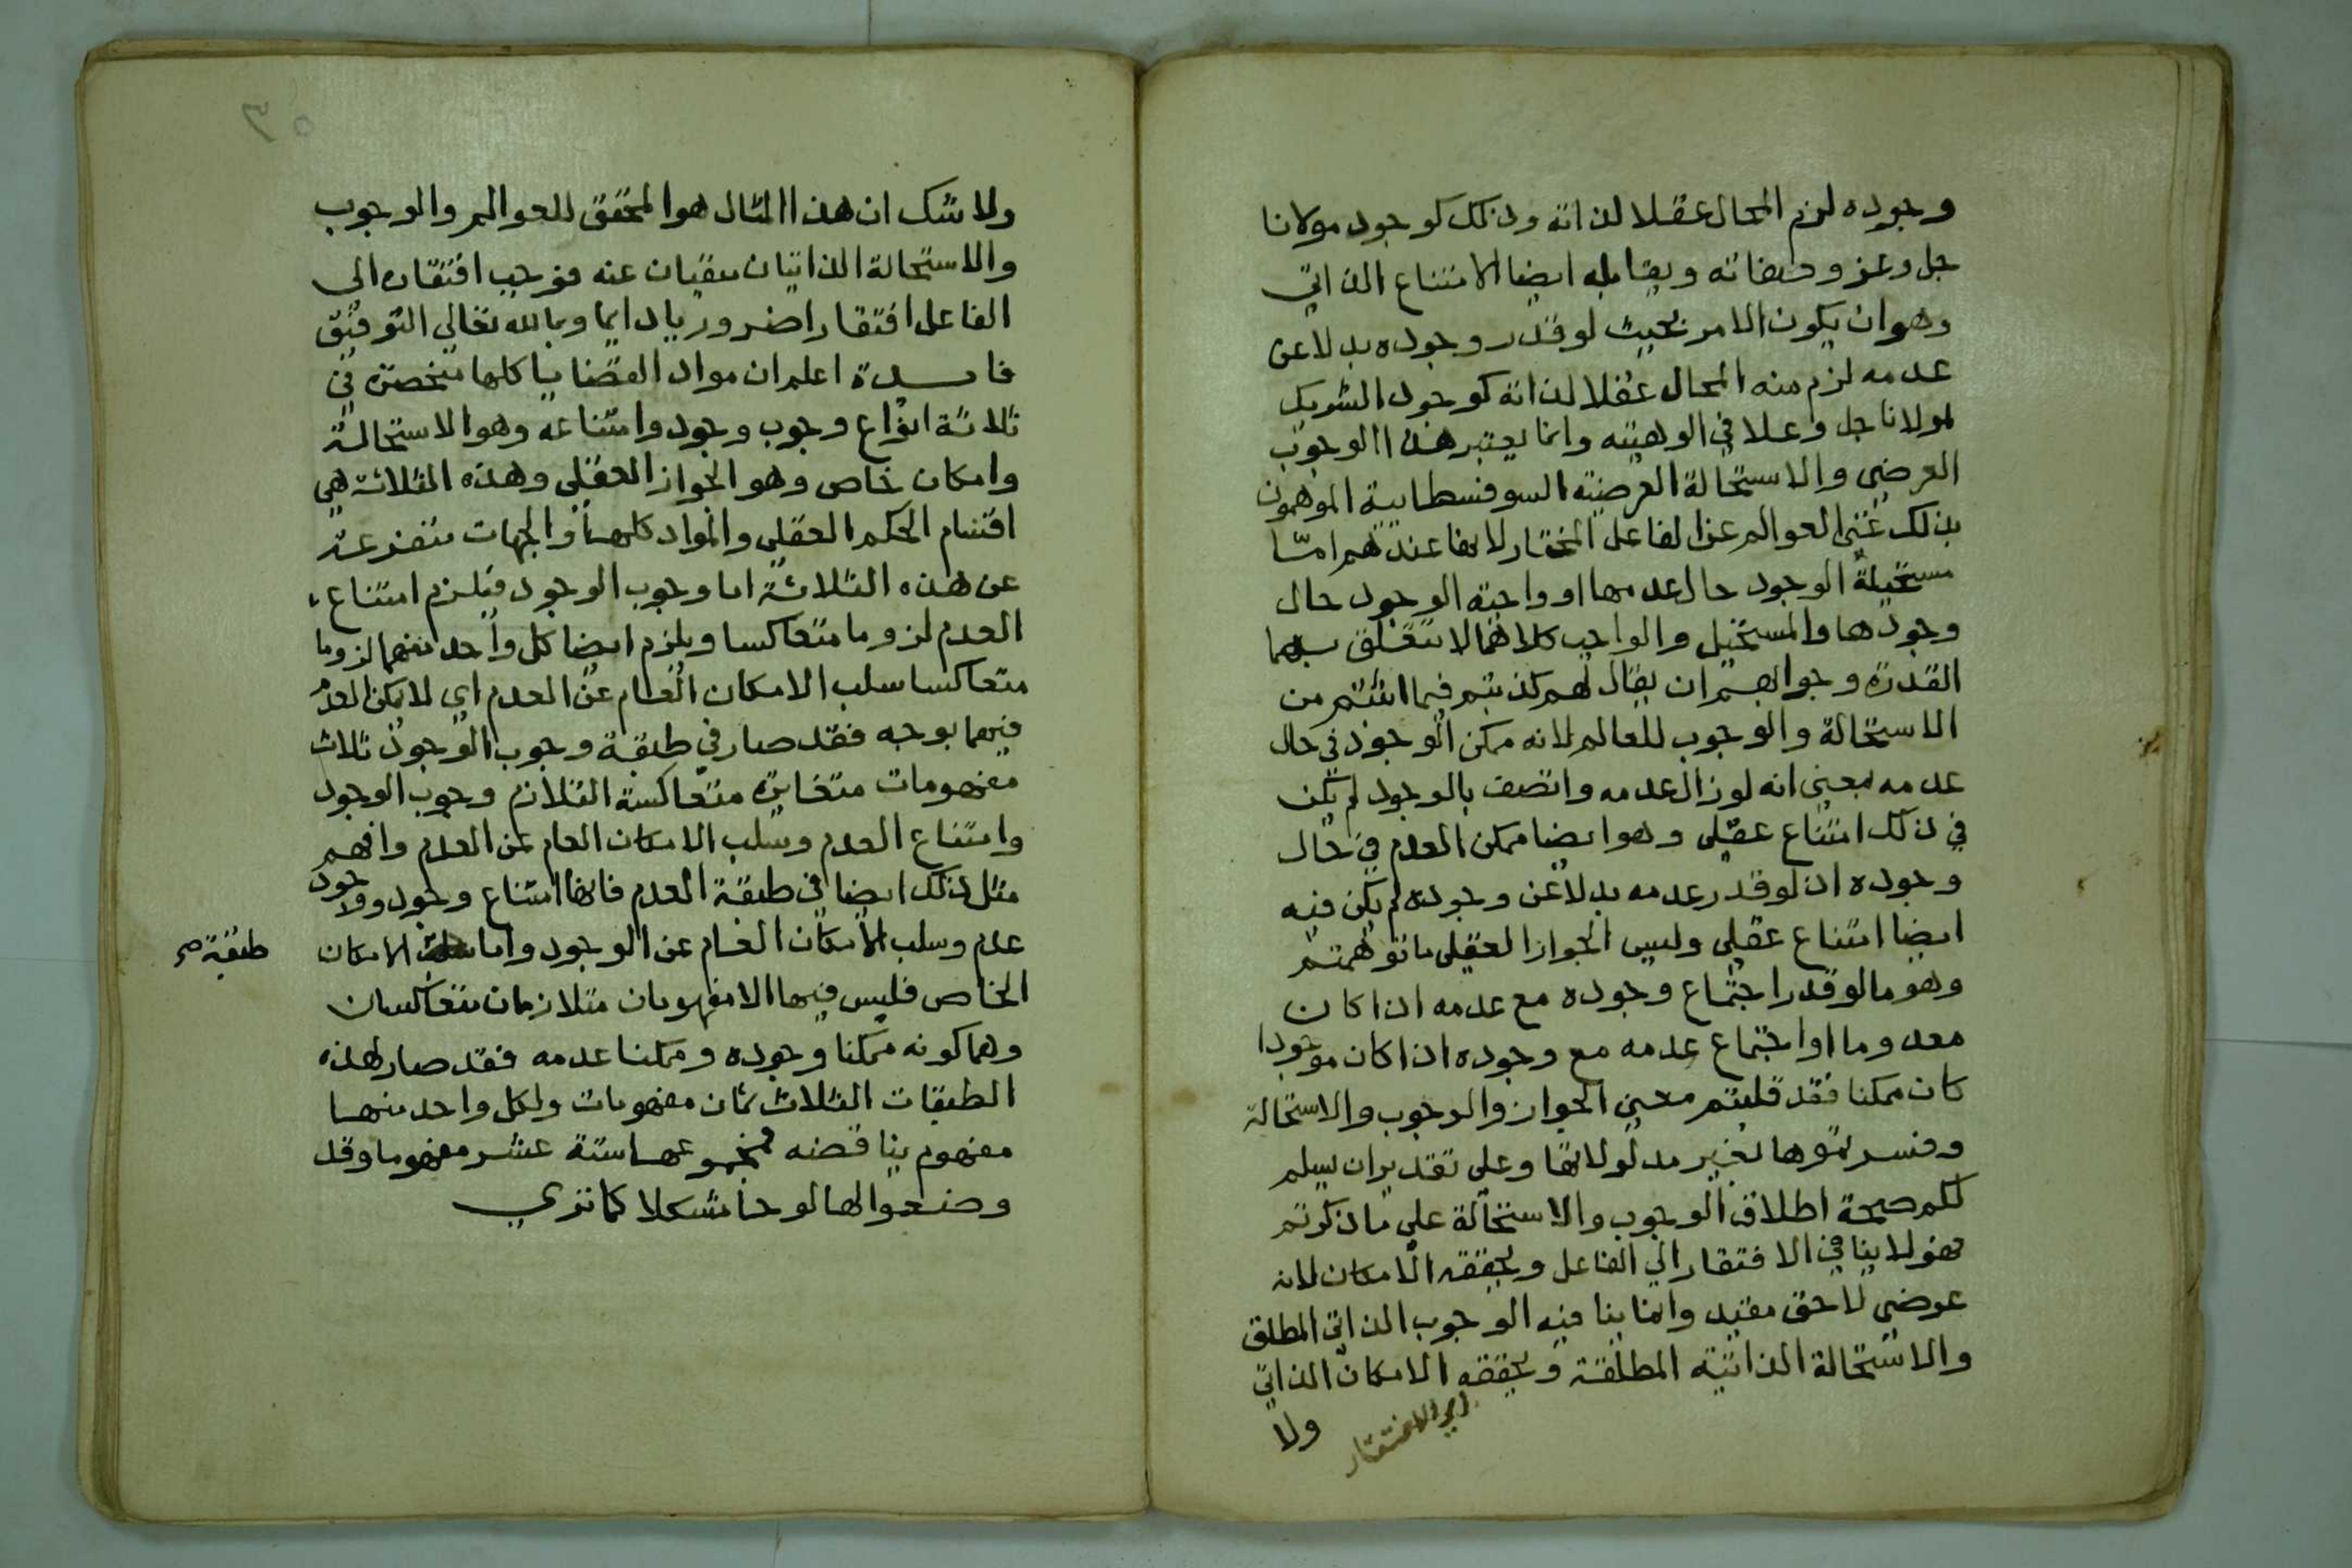 وجوده لزم المحال عقلا لذاته وذلك كوجود مولانا
جل وعز وصفاته ويقابله ايضا الامتناع الذاتي
وهو ان يكون الامر بحيث لو قدر وجوده بدلا عن
عدمه لزم منه المحال عقلا لذاته كوجود الشريك
لمولانا جل وعلا في الوهيته وانما يعتبر هذا الوجوب
العرضي والاستحالة العرضية السوفسطايية الموهمون
بذلك غني العوالم عن الفاعل المختار لانها عندهم امّا
مستحيلة الوجود حال عدمها او واجبة الوجود حال
وجودها والمستحيل والواجب كلاهما لا تتعلق بهما
القدرة وجوابهم ان يقال لهم كذبتم فيما اثبتم من
الاستحالة والوجوب للعالم لانه ممكن الوجود في حال
عدمه بمعني انه لو زال عدمه واتصف بالوجود لم يكن
في ذلك امتناع عقلي وهو ايضا ممكن العدم في حال
وجوده اذ لو قدر عدمه بدلا عن وجوده لم يكن فيه
ايضا امتناع عقلي وليس الجواز العقلي ما توهمتم
وهو ما لو قدر اجتماع وجوده مع عدمه اذا كان
معدوما او اجتماع عدمه مع وجوده اذا كان موجودا
كان ممكنا فقد قلبتم معني الجواز والوجوب والاستحالة
وفسرتموها بغير مدلولاتها وعلي تقدير ان يسلم
لكم صحة اطلاق الوجوب والاستحالة علي ما ذكرتم
فهو لا ينافي الافتقار الي الفاعل ويحققه الامكان لانه
عرضي لاحق مقيد وانما ينافيه الوجوب الذاتي المطلق
والاستحالة الذاتية المطلقة ويحققه الامكان الذاتي
اي الافتقار
ولا
٣٥
ولا شك ان هذا المثال هو المحقق للعوالم والوجوب
والاستحالة الذاتيان منفيان عنه فوجب افتقاره الي
الفاعل افتقارا ضروريا دايما وبالله تعالي التوفيق
فايدة اعلم ان مواد القضايا كلها منحصرة في
ثلاثة انواع وجوب وجود وامتناعه وهو الاستحالة
وامكان خاص وهو الجواز العقلي وهذه الثلاثة هي
اقسام الحكم العقلي والمواد كلها والجهات متفرعة
عن هذه الثلاثة اما وجوب الوجود فيلزم امتناع
العدم لزوما متعاكسا ويلزم ايضا كل واحد منهما لزوما
متعاكسا سلب الامكان العام عن العدم اي لا يمكن العدم
فيهما بوجه فقد صار في طبقة وجوب الوجود ثلاث
مفهومات متغايرة متعاكسة التلازم وجوب الوجود
وامتناع العدم وسلب الامكان العام عن العدم وافهم
مثل ذلك ايضا في طبقة العدم فانها امتناع وجود ووجود
عدم وسلب الامكان العام عن الوجود واما الامكان
طبقة صح
الخاص فليس فيها الا مفهومان متلازمان متعاكسان
وهما كونه ممكنا وجوده وممكنا عدمه فقد صار لهذه
الطبقات الثلاث ثمان مفهومات ولكل واحد منها
مفهوم يناقضه فمجموعها ستة عشر مفهوما وقد
وضعوا لها لوحا مشكلا كما تري